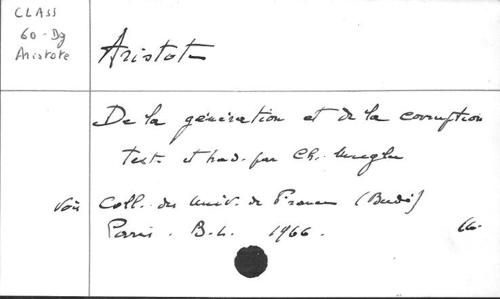 CLASS
60-Dg
Aristote
Aristote
De la génération et de la corruption
Text. et trad. par Ch. Mugler
Voir Coll. des Univ. de France (Budé)
Paris. B.L. 1966.